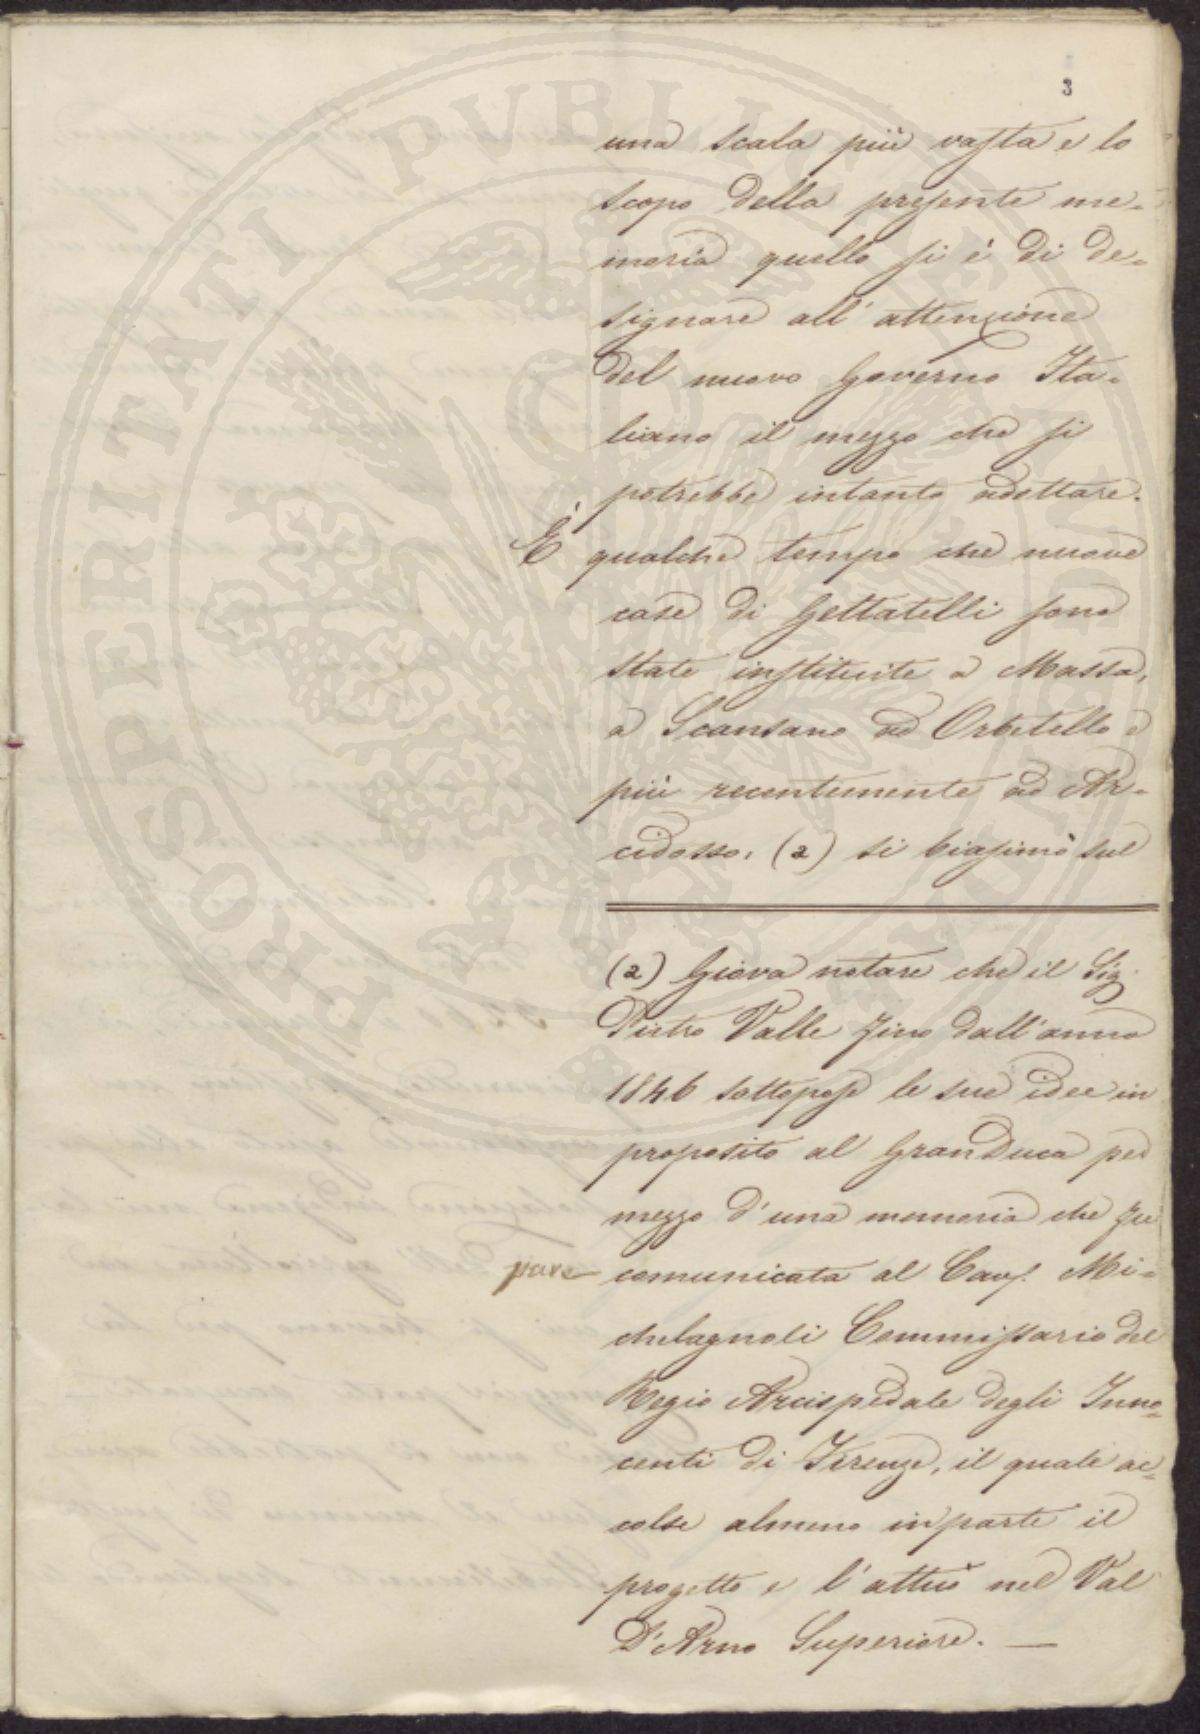 3
una scala più vasta e lo
scopo della presente me-
moria quello si è di de-
signare all'attenzione
del nuovo Governo Ita-
liano il mezzo che si
potrebbe intanto adottare.
È qualche tempo che nuove
case di Gettatelli sono
state instituite a Massa,
a Scansano ad Orbetello e
più recentemente ad Ar-
cidosso. (2) si biasimò sul
(2) Giova notare che il Sig.
Pietro Valle fino dall'anno
1846 sottopose le sue idee in
proposito al GranDuca per
mezzo d'una memoria che fu
pure comunicata al Cav. Mi-
chelagnoli Commissario del
Regio Arcispedale degli Inno-
centi di Firenze, il quale ac-
colse almeno in parte il
progetto e l'attuò nel Val
D'Arno Superiore. —
PROSPERITATI PVBLICAE AVGENDAE